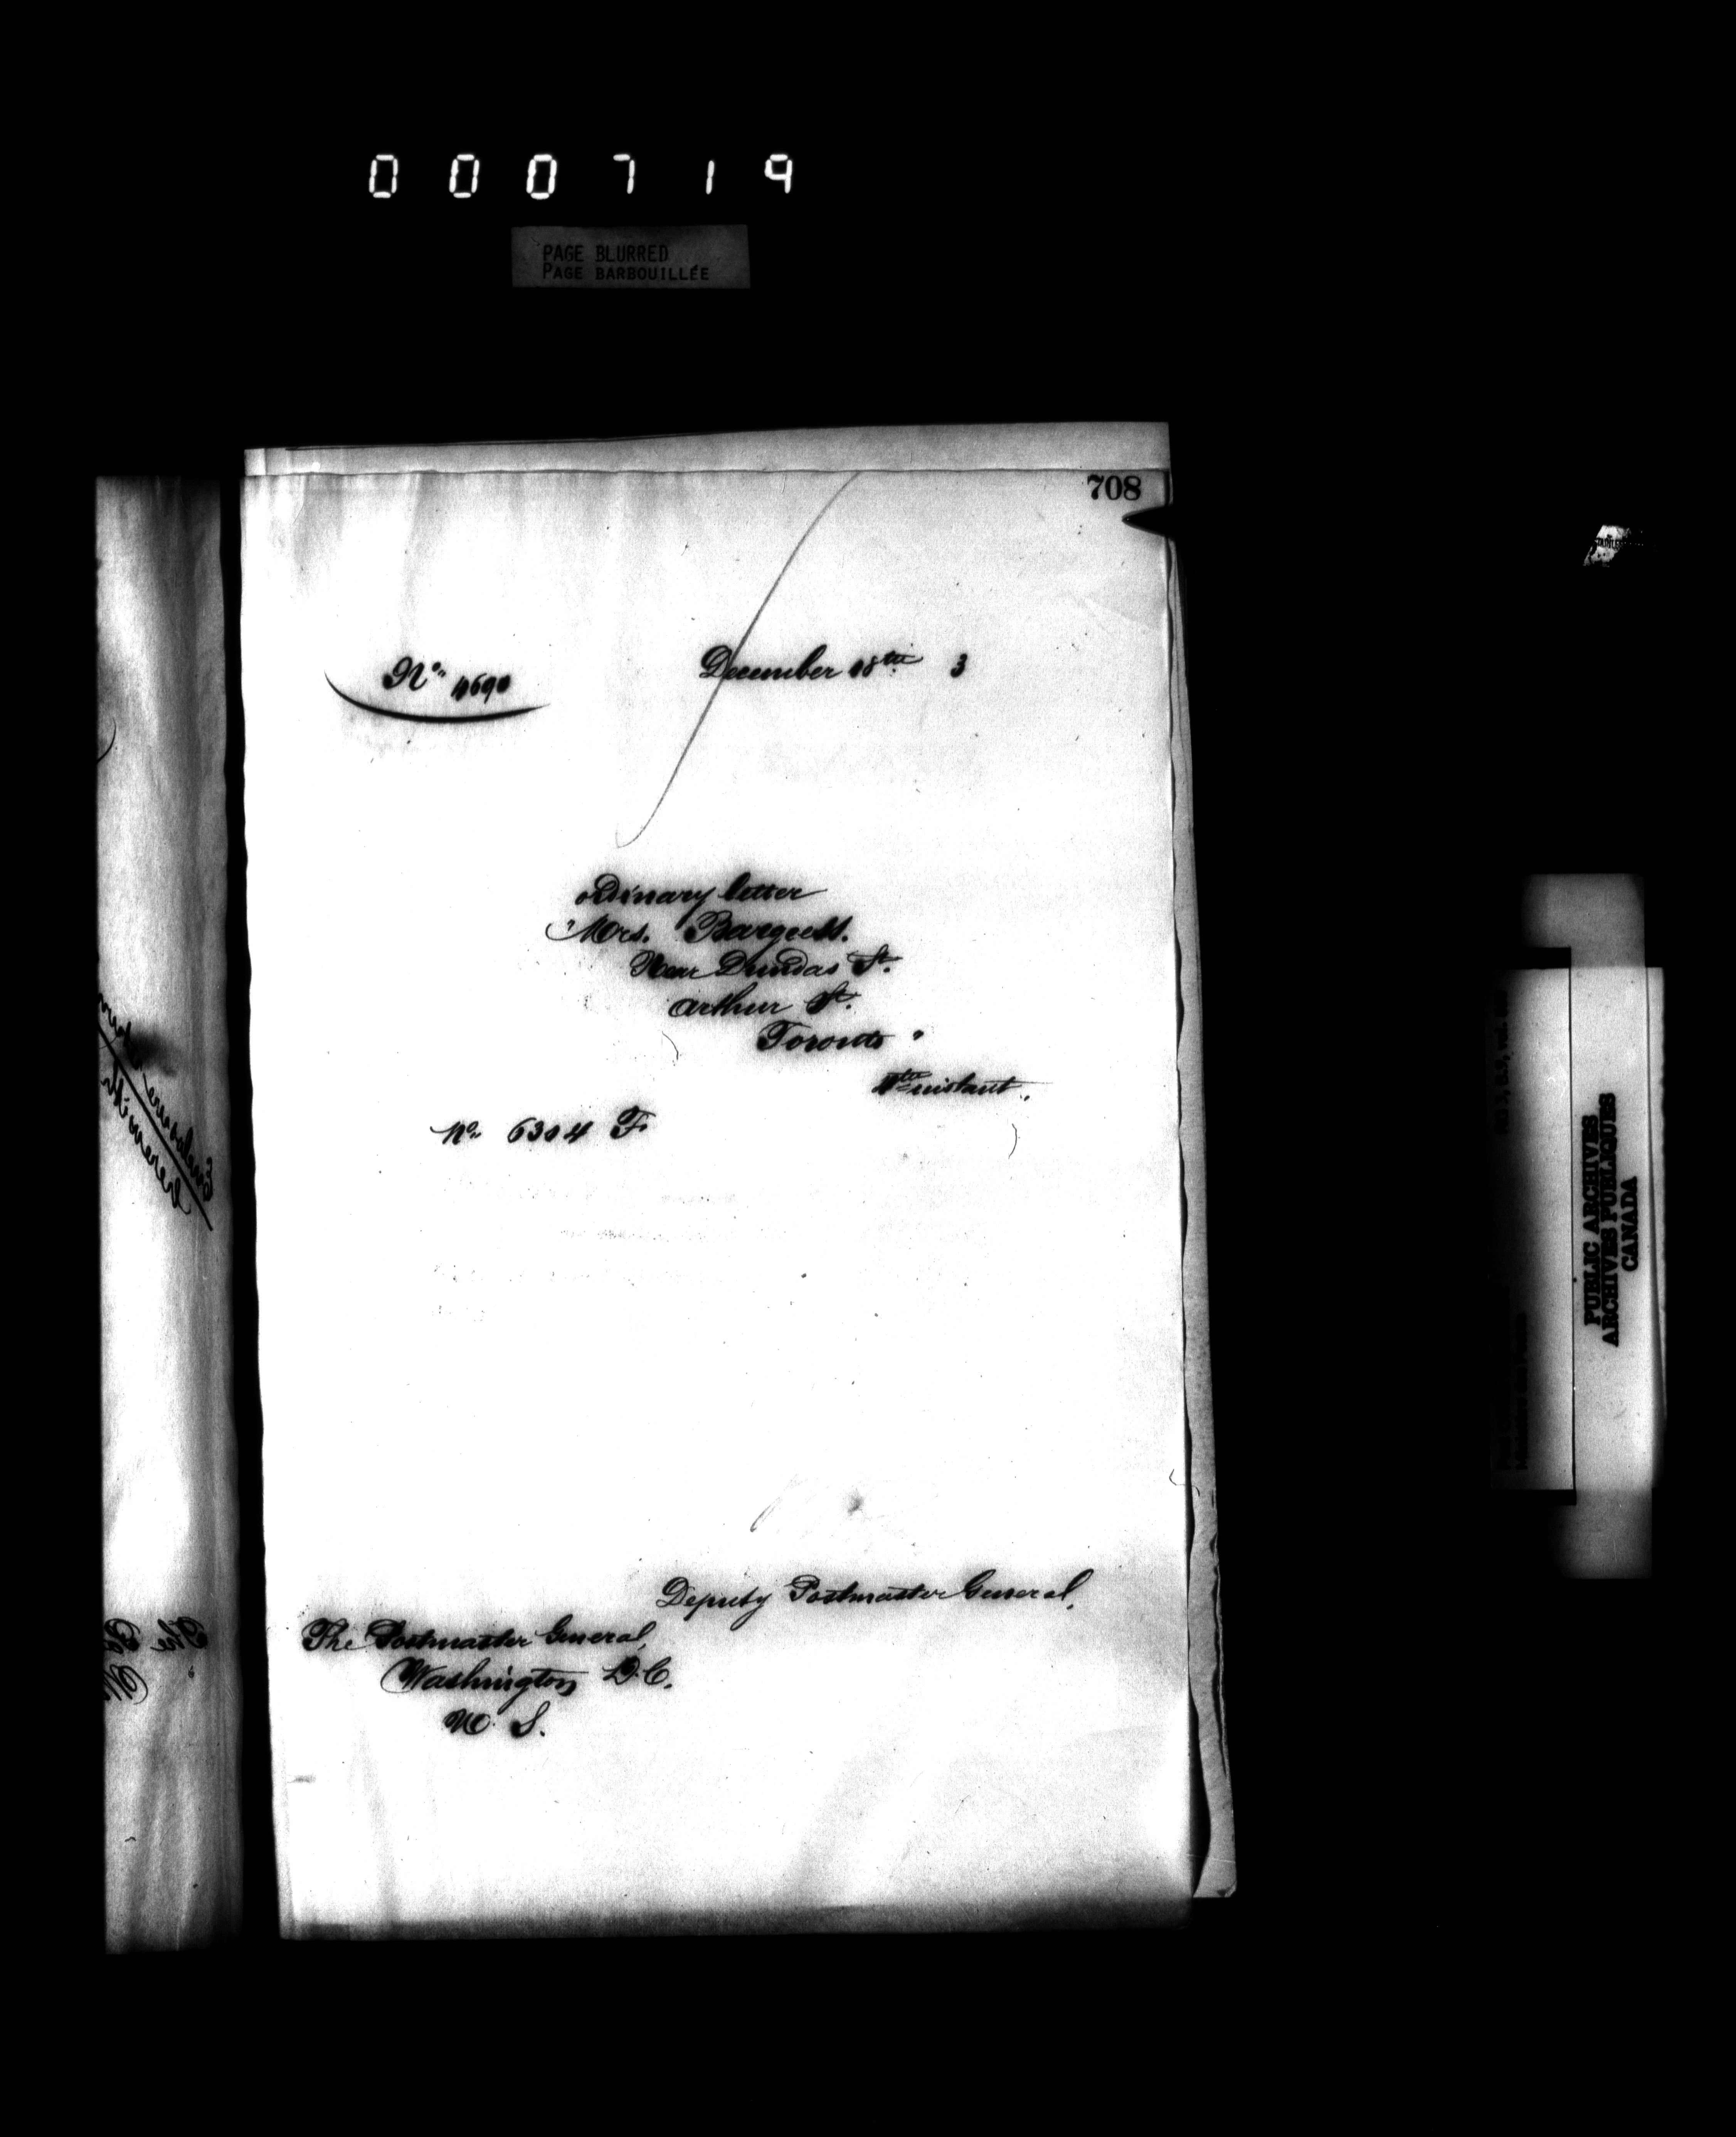 000719
PAGE BLURRED
PAGE BARBOUILLÉE
708
No. 4690
December 18th 3
ordinary letter
"Mrs. Bargess.
Near Dundas St.
Arthur St.
Toronto"
instant.
No. 6304 F.
Deputy Postmaster General.
The Postmaster General,
Washington D.C.
U. S.
PUBLIC ARCHIVES
ARCHIVES PUBLIQUES
CANADA